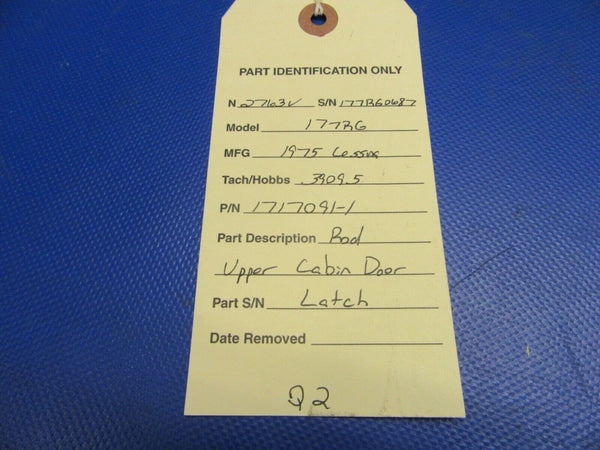 PART IDENTIFICATION ONLY
N 2763V S/N 177RG0687
Model 177RG
MFG 1975 Cessna
Tach/Hobbs 3909.5
P/N 1717091-1
Part Description Rod
Upper Cabin Door
Part S/N Latch
Date Removed
Q2